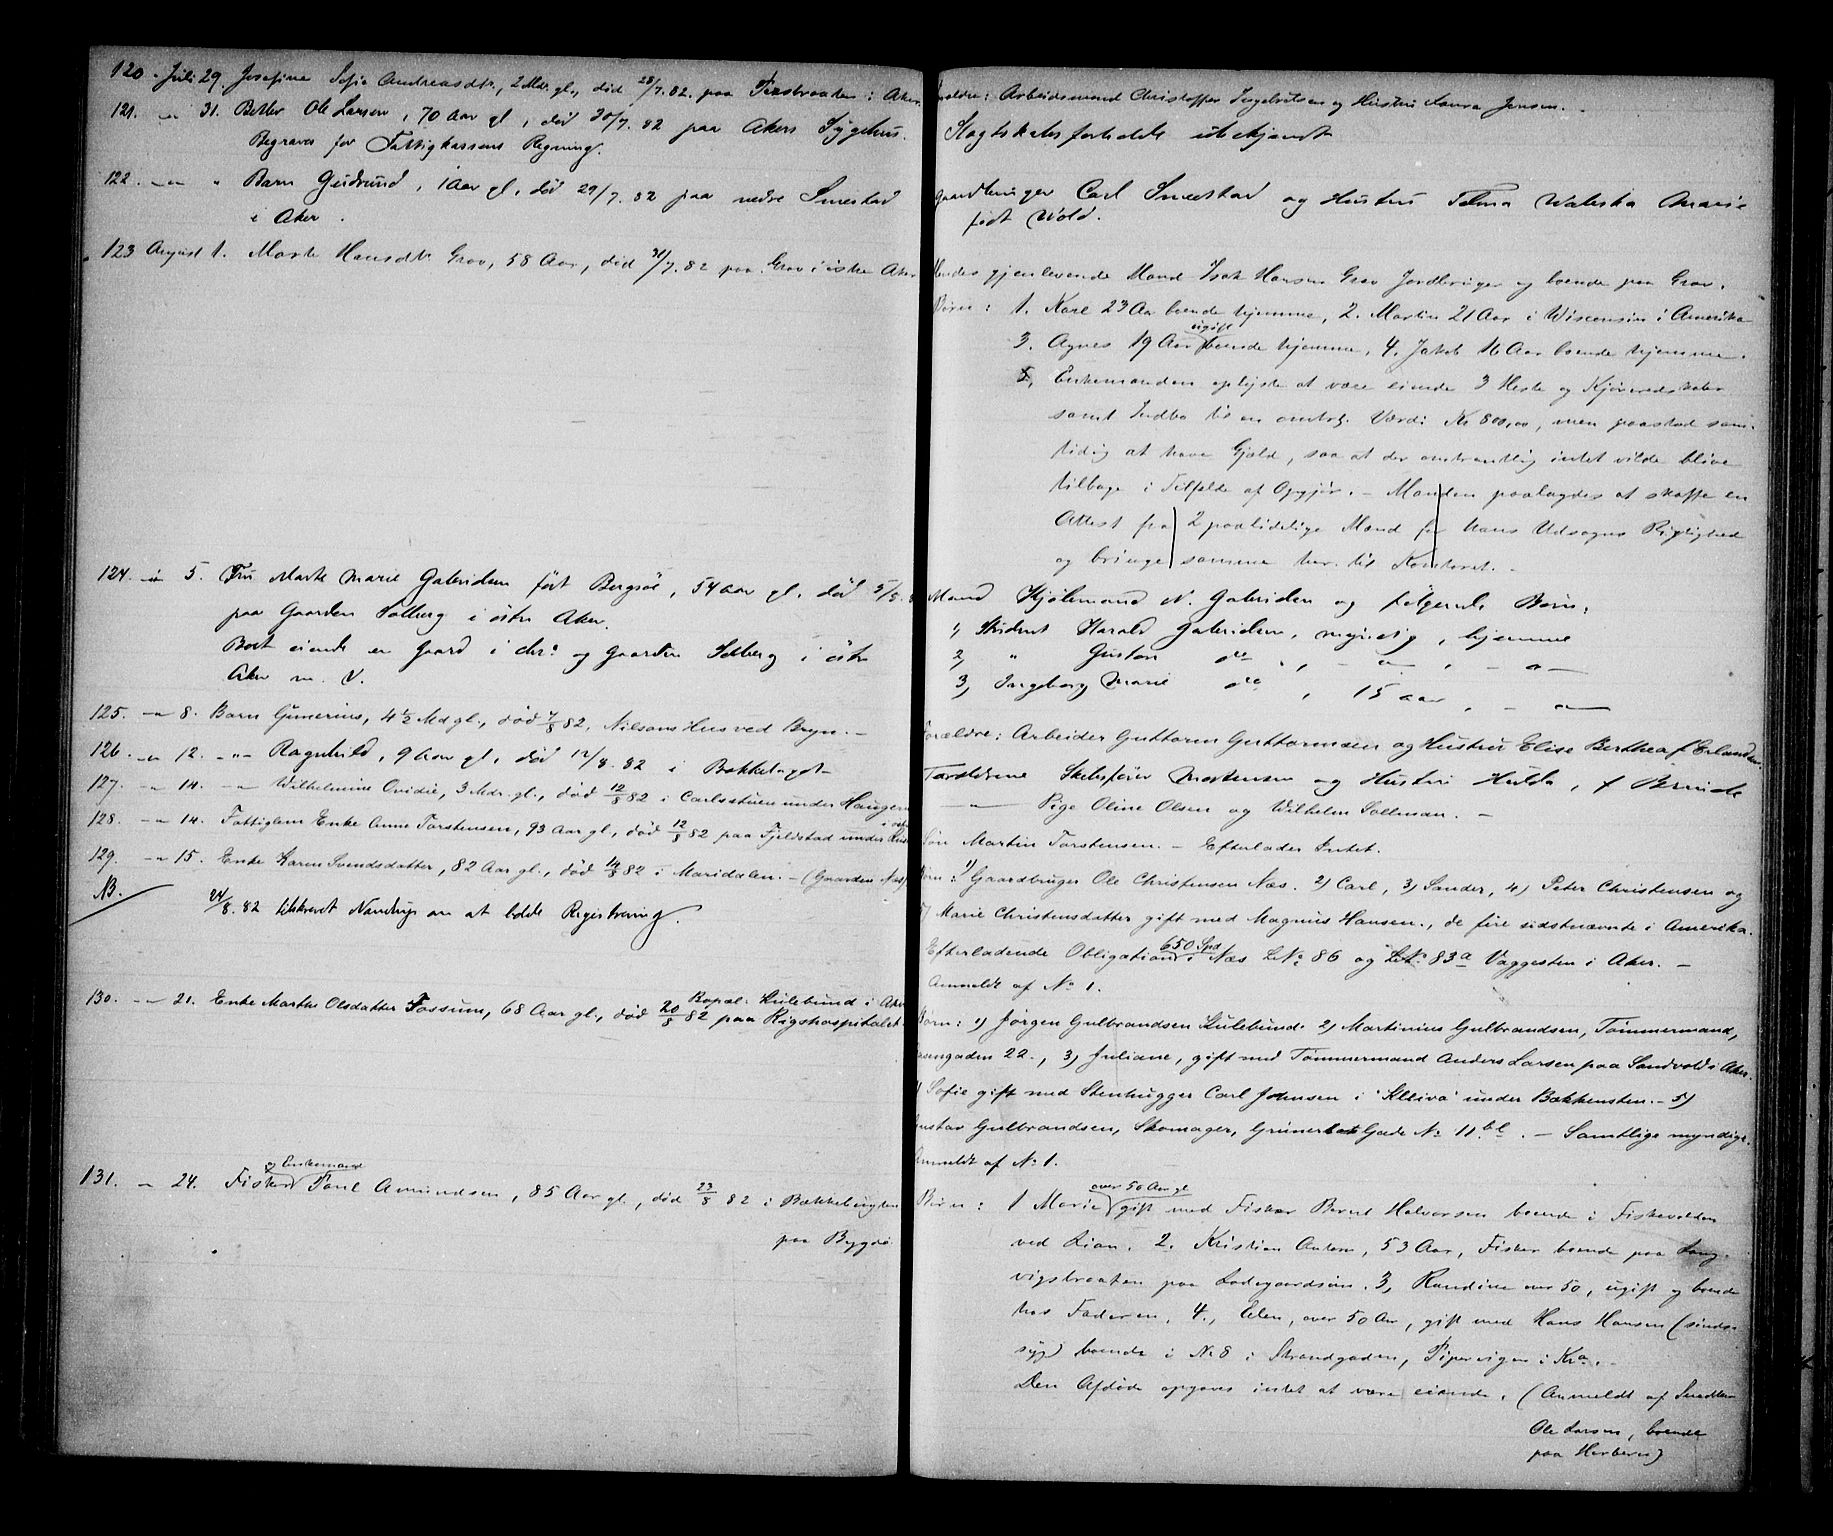 120. Juli 29. Josefine Sofie Andreasdtr, 2 Mdr. gl., død 28/7.82. paa i Aker.
121. -"- 31. Betler Ole Larsen, 70 Aar gl, død 30/7.82 paa Akers Sygehus.
Begraves for Fattigkassens Regning.
122. -"- " Barn Gudrund, 1 Aar gl, død 29/7.82 paa nedre Smestad
i Aker.
123 August 1. Marte Hansdtr Grav, 58 Aar, død 31/7.82 paa Grav i østre Aker
124. -"- 5. Fru Marte Marie Gabrielsen født Bergsøe, 54 aar gl. død 5/8.8
paa Gaarden Solberg i østre Aker.
Boet eiende en Gaard i og Gaarden Solberg i østre
Aker m. V.
125. -"- 8. Barn Gunerius, 4½ Md gl., død 7/8 82, Nilsons Hus ved Bryn. -
126. -"- 12. -"- Ragnhild, 9 Aar gl, død 12/8.82 i Bækkelaget
127. -"- 14. -"- Wilhelmine Ovidie, 3 Mdr. gl., død 12/8 82 i Carlsstuen under Haugen
128. -"- 14. Fattiglem Enke Anne Torstensen, 93 Aar gl, død 12/8 82 paa Fjeldstad under
129. -"- 15. Enke Karen Svendsdatter, 82 Aar gl., død 14/8 82 i Maridalen. - (Gaarden Næs)
NB. 24/8.82 tilskrevet Nandrup om at holde Registrering.
130. -"- 21. Enke Marthe Olsdatter Fossum, 68 Aar gl., død 20/8 82 paa Rigshospitalet.
Bopæl: Kulebund i Aker
131. - 24. Fisker og Enkemand Poul Amundsen, 85 Aar gl, død 23/8 82 i Bækkebugten
paa Bygdø.
Forældre: Arbeidsmand Christoffer Ingebretsen og Hustru Laura Jensen.
Slægtskabsforholde ubekjendt
Gaardbruger Carl Smestad og Hustru Telma Waleska Marie
født Wold.
Hendes gjenlevende Mand Isak Hansen Grav Jordbruger og boende paa Grav.
Børn: 1. Karl 23 Aar boende hjemme, 2. Martin 21 Aar i Wisconsin i Amerika
3. Agnes 19 Aar ugift boende hjemme, 4. Jakob 16 Aar boende hjemme.
Enkemanden oplyste at være eiende 3 Heste og Kjøreredskaber
samt Indbo til en omtrtl. Værdi Kr 800,00, men paastod sam-
tidig at have Gjæld, saa at der omtrentlig intet vilde blive
tilbage i Tilfælde af Opgjør. - Manden paalagdes at skaffe en
Attest fra 2 paalidelige Mænd for hans Udsagns Rigtighed
og bringe samme her til Kontoret. -
Mand Kjøbmand N. Gabrielsen og følgende Børn:
1, Student Harald Gabrielsen, myndig, hjemme
2, " Gustav do, - " -, - " -
3, Ingeborg Marie do, 15 aar, - " -
Forældre: Arbeider Guttorm Guttormsen og Hustru Elise Berthea f. Erlandsen.
Forældrene Skibsfører Mortensen og Hustru Hulda, f
-"- Pige Oline Olsen og Wilhelm Sollman. -
Søn Martin Torstensen. - Efterlader Intet.
Børn: 1) Gaardbruger Ole Christensen Næs. 2) Carl, 3) Sander, 4) Peter Christensen og
5) Marie Christensdatter gift med Magnus Hansen., de fire sidstnævnte i Amerika.
Efterladende Obligation 650 Spd i Næs LNo 86 og LNo 83a Vaggesten i Aker. -
Anmeldt af No 1.
Børn: 1) Jørgen Gulbrandsen Kulebund. 2) Martinius Gulbrandsen, Tømmermand,
22., 3) Juliane, gift med Tømmermand Anders Larsen paa Sandvold i Aker.
4) Sofie gift med Stenhugger Carl Johnsen i "Kleiva" under Bækkensten. - 5)
Gustav Gulbrandsen, Skomager, Grüners Gade No 11 bl. - Samtlige myndige.
Anmeldt af No 1.
Børn: 1 Marie over 50 Aar gl gift med Fisker Bernt Halvorsen boende i Fiskevolden
ved Lian. 2. Kristian Anton, 53 Aar, Fisker boende paa Lang-
vigsbraaten paa Ladegaardsøen. 3, Randine over 50, ugift og boende
hos Faderen, 4., Elen, over 50 Aar, gift med Hans Hansen (sinds-
syg) boende i No 8 i Strandgaden, Pipervigen i Kra. -
Den Afdøde opgaves intet at være eiende. (Anmeldt af Snedker
Ole Larsen, boende
paa Herbern)